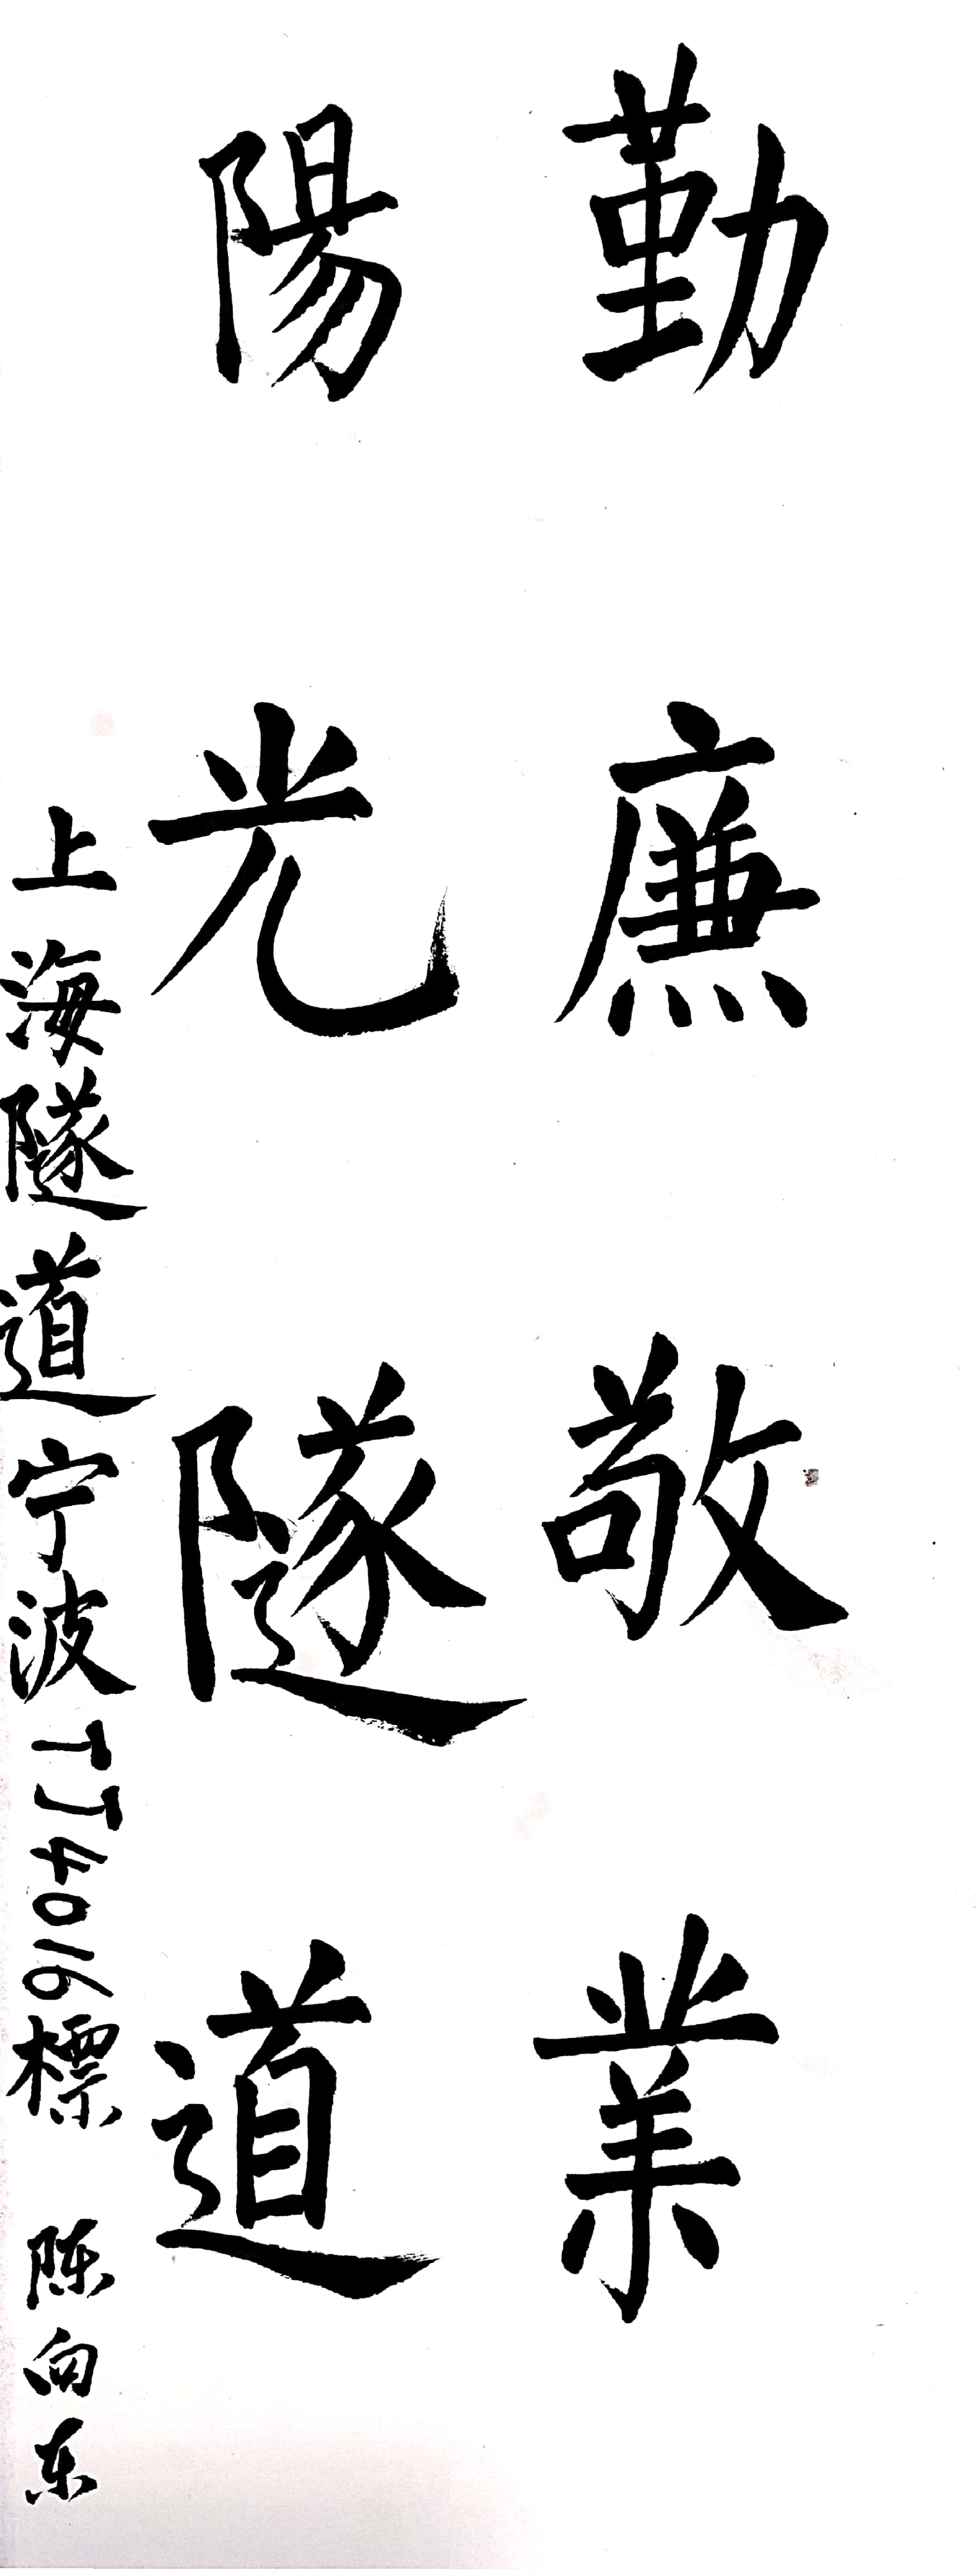 勤廉敬業
陽光隧道
上海隧道宁波TJ4016標 陈向东